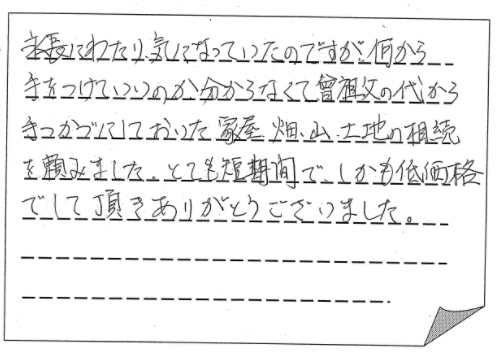 永年にわたり気になっていたのですが、何から
手をつけていいのか分からなくて曾祖父の代から
手つかづにしておいた家屋、畑、山、土地の相続
を頼みました。とても短期間で、しかも低価格
でして頂きありがとうございました。